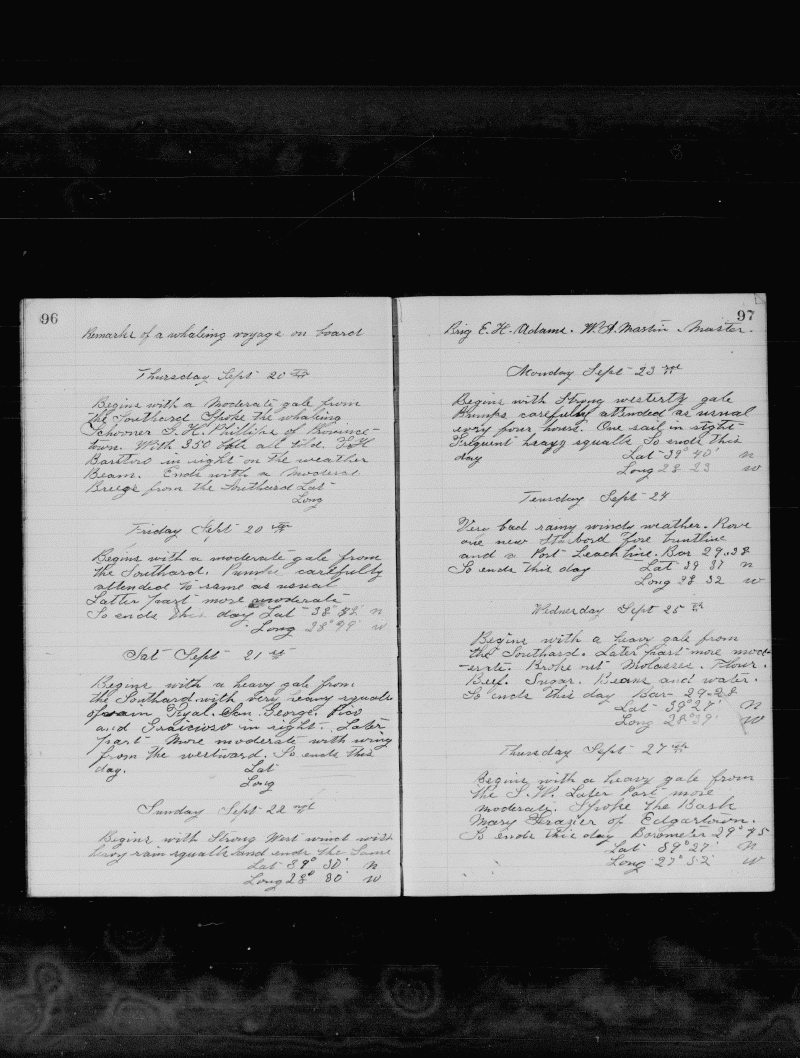 96
Remarks of a whaleing voyage on board
Thursday Sept 20th
Begins with a Moderate gale from
the Southard Spoke the whaling
Schooner of Province-
town. With 350 bbls all told.
Bartlow in sight on the weather
Beam. Ends with a Moderate
Breeze from the Southard Lat
Long
Friday Sept 20th
Begins with a moderate gale from
the Southard. Pumps carefully
attended to same as usual
Latter part more moderate
So ends this day Lat 38° n
Long 28° w
Sat Sept 21st
Begins with a heavy gale from
the Southard with very heavy squals
of rain Fyal. San George. Pico
and Graicioso in sight. Later
part More moderate with wing
from the westward. So ends this
day. Lat
Long
Sunday Sept 22nd
Begins with Strong West wind with
heavy rain squalls and ends the Same
Lat 39° 30' n
Long 28° 30' w
97
Brig E. H. Adams. W. A. Martin Master.
Monday Sept 23rd
Begins with Strong westerly gale
Pumps carefully attended as usual
evry four hours. One sail in sight
Frequent heavy squalls So ends this
day Lat 39° 40' n
Long 28 23 w
Teusday Sept 24
Very bad rainy windy weather. Rove
one new Starbord fore buntline
and a Port Leach line. Bar 29.38
So ends this day Lat 39 37 n
Long 28 32 w
Wednesday Sept 25th
Begins with a heavy gale from
the Southard. Later part more mod-
-erate. Broke out Molasses. Flour.
Beef. Sugar. Beans and water.
So ends this day Bar- 29-28
Lat 39° 27' N
Long 28° 29' W
Thursday Sept 27th
Begins with a heavy gale from
the S.W. Later Part more
moderate. Spoke the Bark
Mary Frazier of Edgartown.
So ends this day Barometer 29° 45
Lat 39° 27' N
Long 27° 52' W